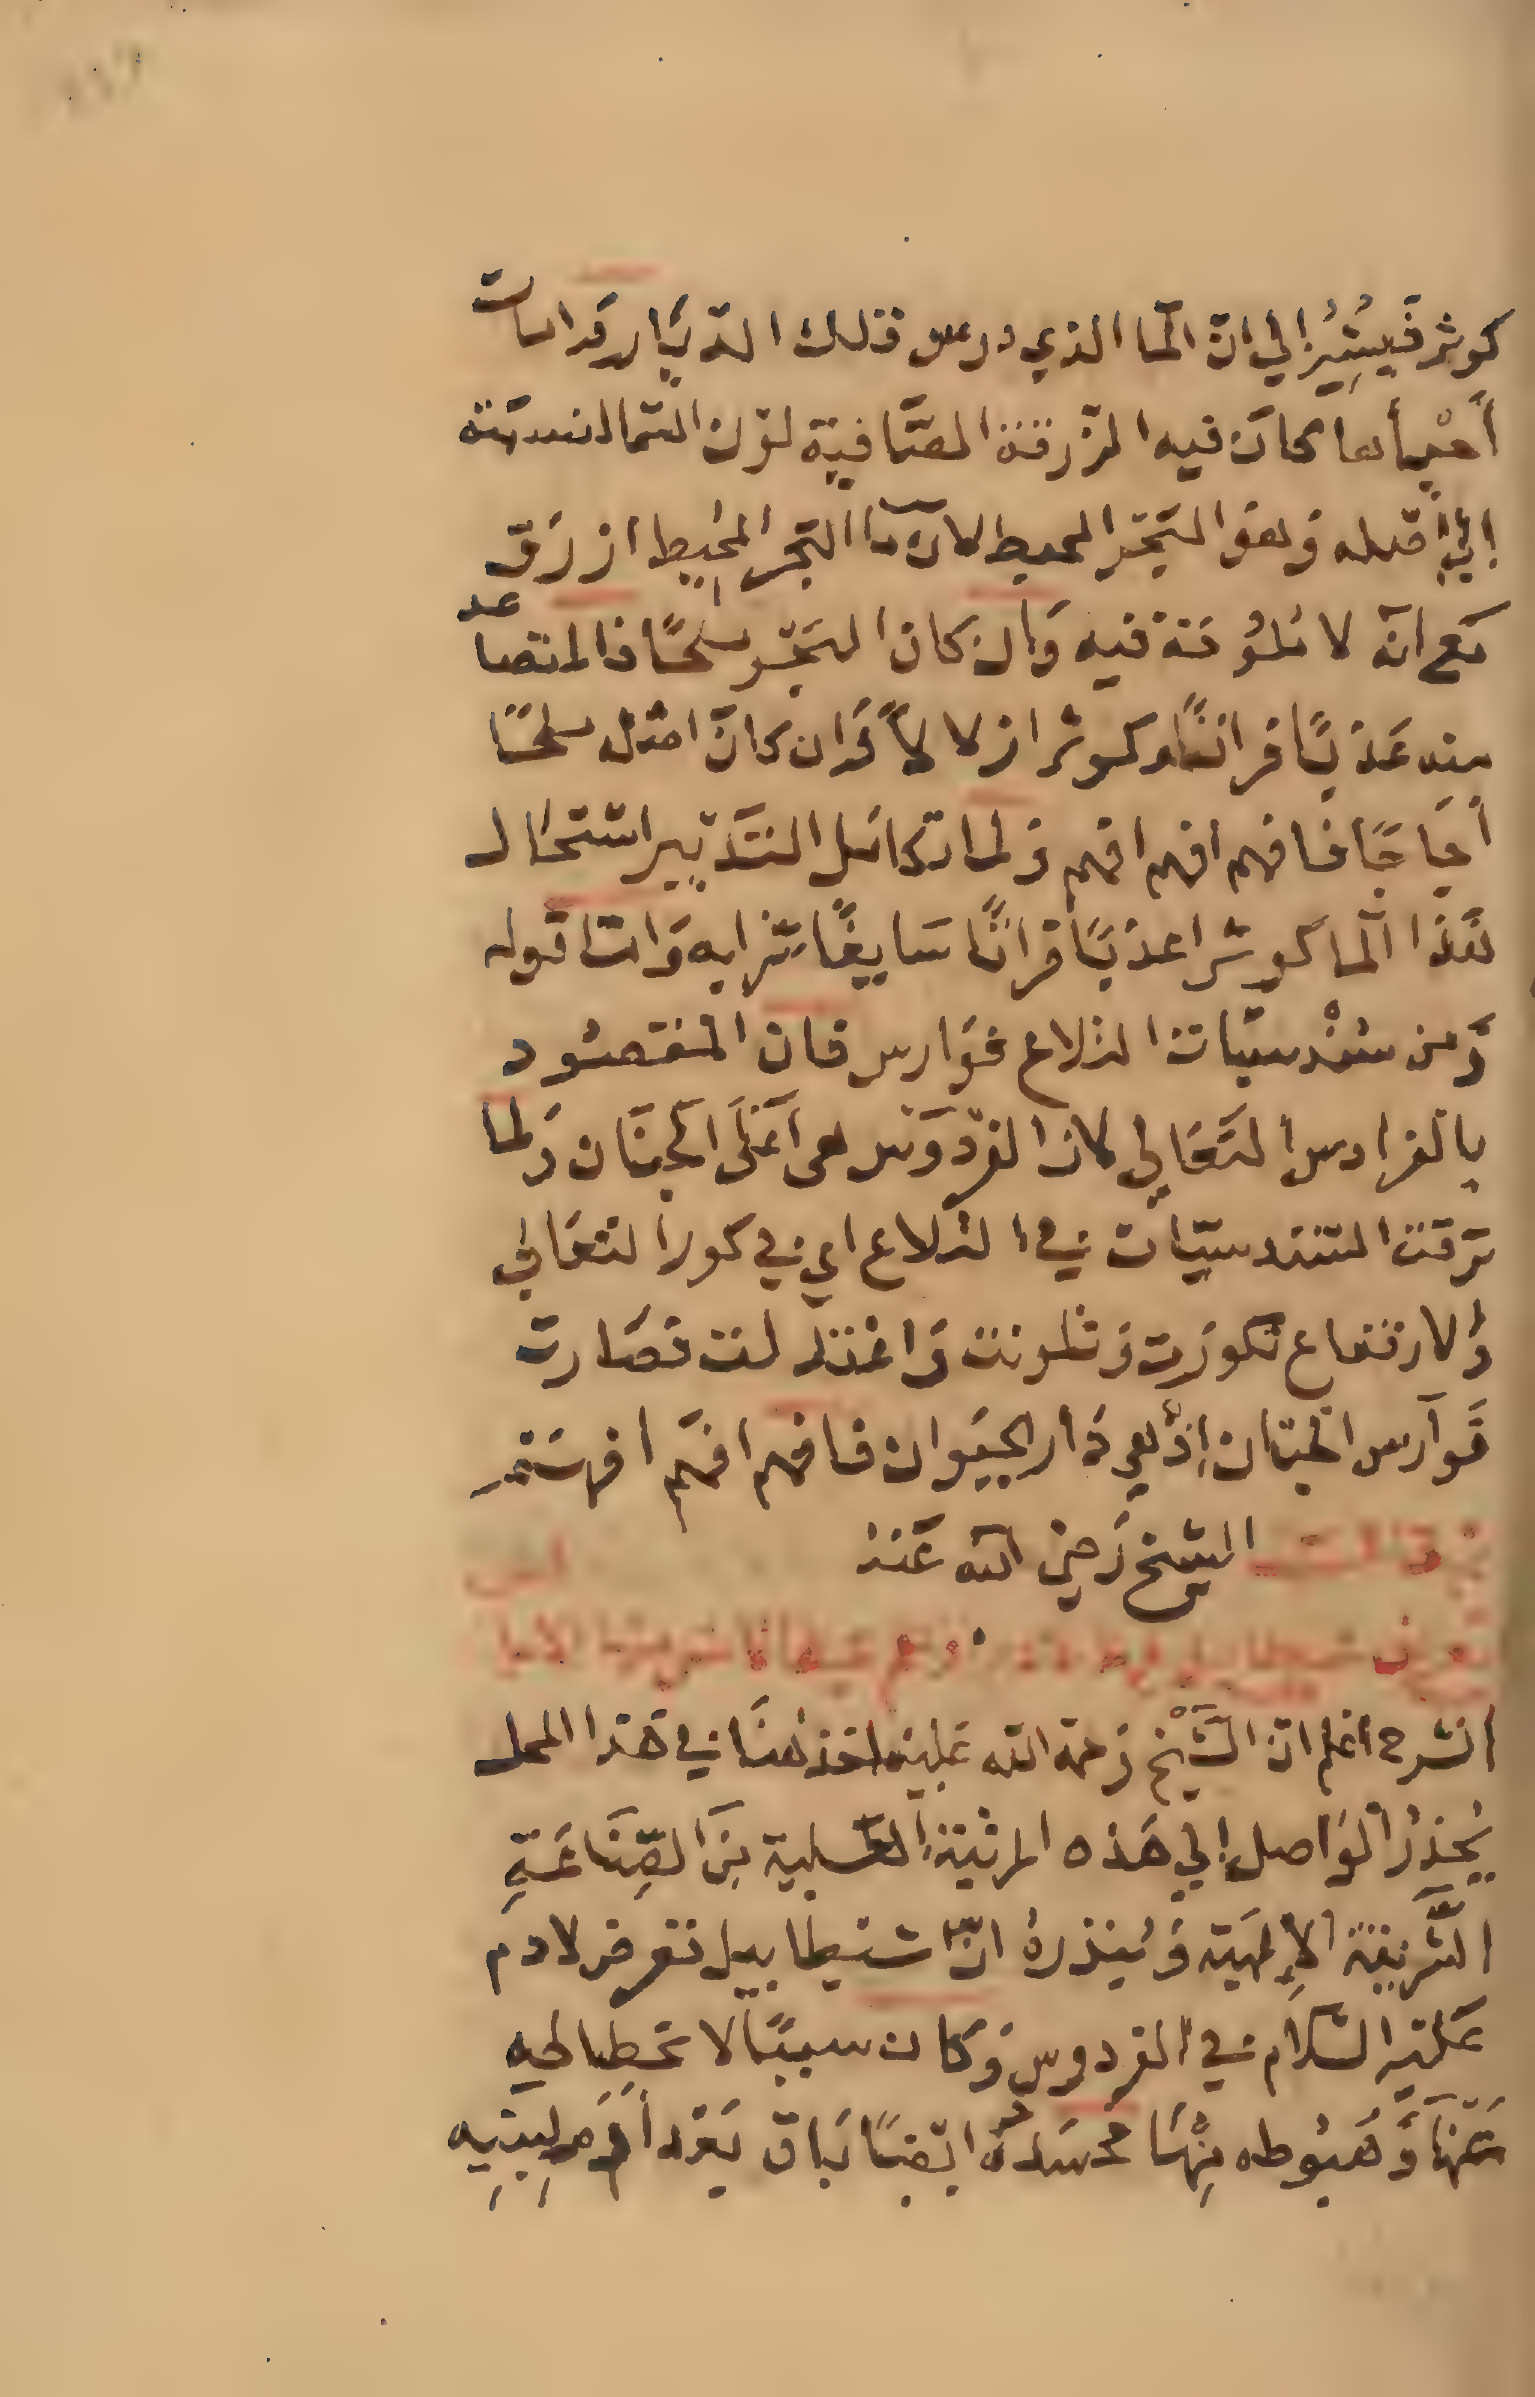 كوثر فيشير الي ان الما الذي درس تلك الديار قد امات
أحيأها كان فيه الزرقة الصافية لون السما لنسبته
إلي اصله وهو البحر المحيط لان ما البحر المحيط ازرق
مع انه لا ملوحة فيه وان كان البحر ملحًا فالمتصاعد
منه عذبًا فراتًا وكوثرا زلالاً وان كان اصله ملحًا
أجاجًا فافهم افهم افهم ولما تكامل التدبير استحال
هذا الما كوثرا عذبًا فراتًا سايغًا شرابه واما قوله
ومن سندسيات التلاع فوارس فان المقصود
بالفرادس التعالي لان الفردوس هي أعلى الجنان ولما
ترقت السندسيات في التلاع اي في كور التعالي
والارتفاع تكورت وتلونت واعتدلت فصارت
فوارس الجنان إذ هي دار الحيوان فافهم افهم افهم
الشيخ رضي الله عنه
الشرح اعلم ان الشيخ رحمة الله عليه اخذ هنا في هذا المحل
يحذر الواصل إلي هذه المرتبة العلية من الصناعة
الشريفة الإلهية وينذره ان شيطابيل تعرض لادم
عليه السلام في الفردوس وكان سببًا لانحطاطه
عنها وهبوطه منها فحسده ايضًا باق بعد ادم لبنيه